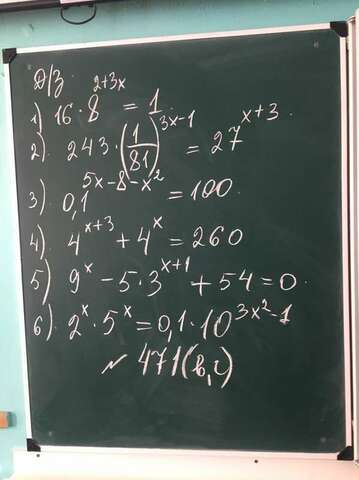 Д/З.
1) 16·8^{2+3x} = 1.
2). 243·(1/81)^{3x-1} = 27^{x+3}
3). 0,1^{5x-8-x^2} = 100.
4). 4^{x+3} + 4^x = 260
5) 9^x - 5·3^{x+1} + 54 = 0.
6). 2^x·5^x = 0,1·10^{3x^2-1}
~ 471(в,г)